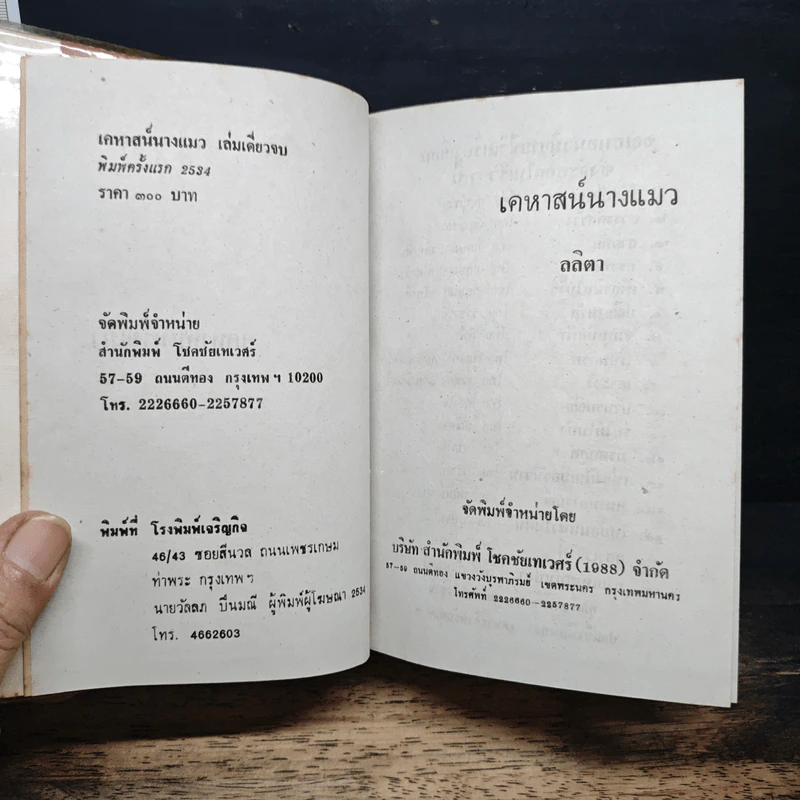 เคหาสน์นางแมว เล่มเดียวจบ
พิมพ์ครั้งแรก 2534
ราคา ๓๐๐ บาท
จัดพิมพ์จำหน่าย
สำนักพิมพ์ โชคชัยเทเวศร์
57-59 ถนนตีทอง กรุงเทพฯ 10200
โทร. 2226660-2257877
พิมพ์ที่ โรงพิมพ์เจริญกิจ
46/43 ซอยสีนวล ถนนเพชรเกษม
ท่าพระ กรุงเทพฯ
นายวัลลภ ปิ่นมณี ผู้พิมพ์ผู้โฆษณา 2534
โทร. 4662603
เคหาสน์นางแมว
ลลิตา
จัดพิมพ์จำหน่ายโดย
บริษัท สำนักพิมพ์ โชคชัยเทเวศร์ (1988) จำกัด
57-59 ถนนตีทอง แขวงวังบูรพาภิรมย์ เขตพระนคร กรุงเทพมหานคร
โทรศัพท์ 2226660-2257877